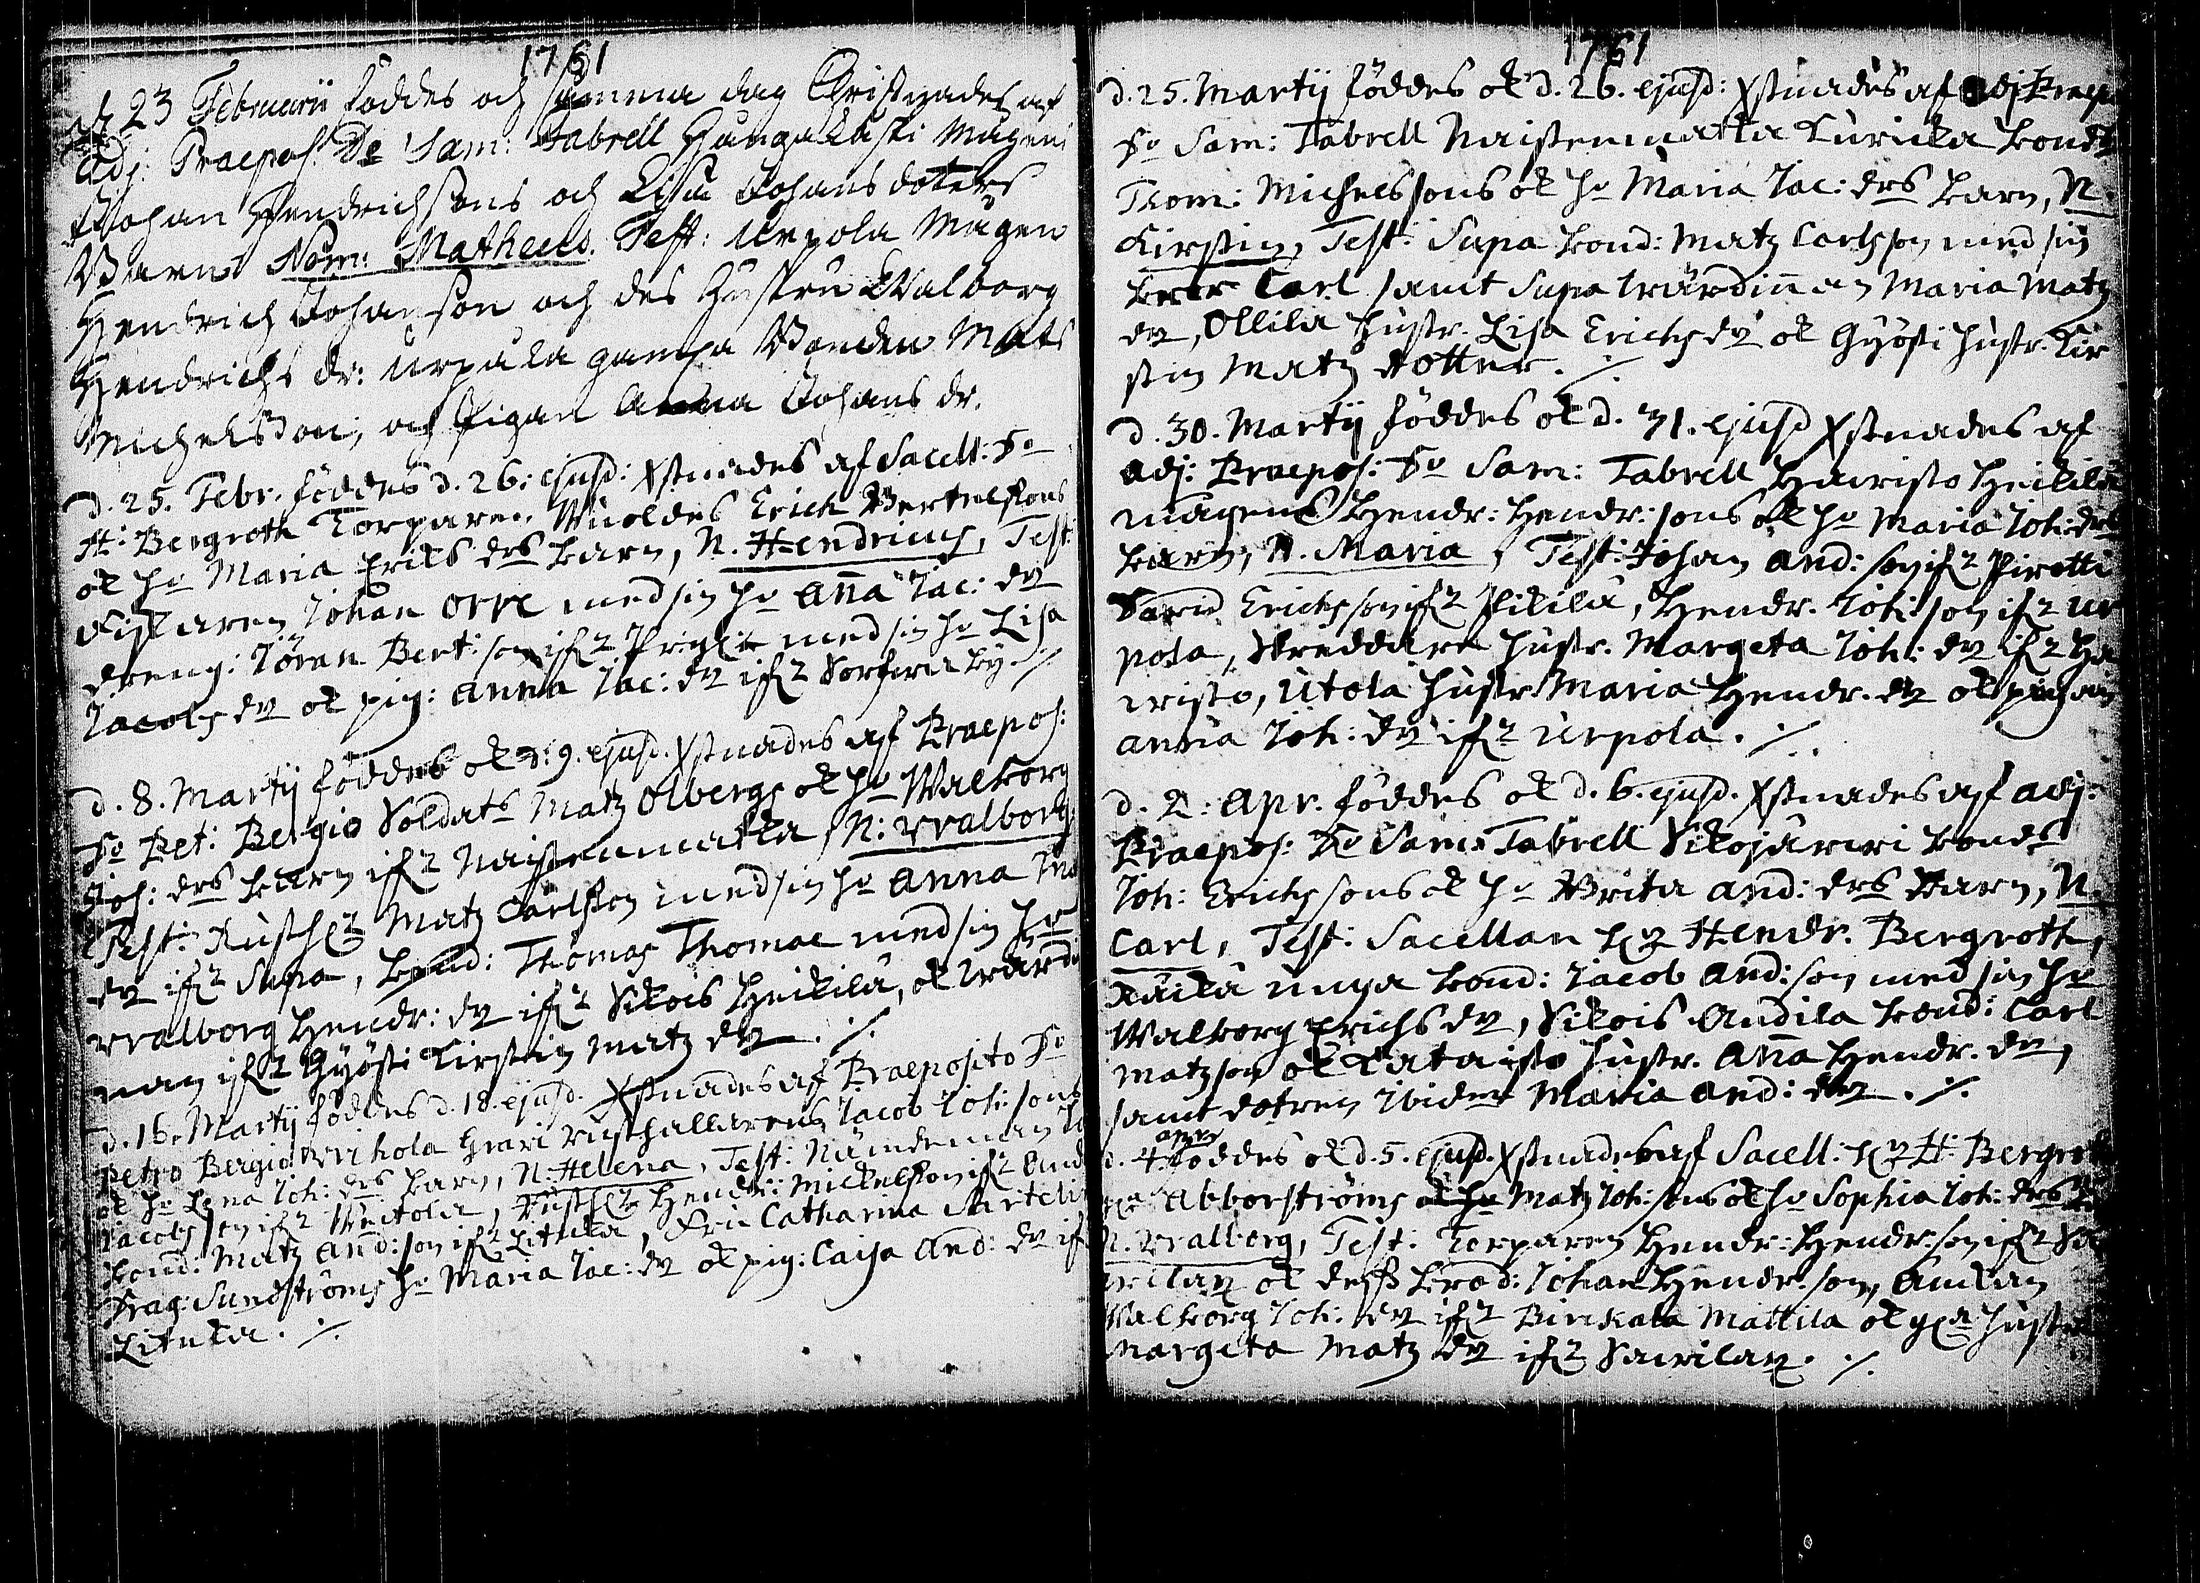 1761
d. 23 Februarii föddes och samma dag Christnades af
Adj: Praepos: Do Sam: Tabrell Mågens
Johan Hendrichsons och Lisa Johans doters
Barn Nom: Matheus. Test: Urpola Mågen
Hendrich Johanson och des Hustru Walborg
Hendrichs dr: Urpala Bonden Mats
Michelsson, och Pigan Anna Johans dr.
d. 25. Febr. föddes d. 26: ejusd: Xstnades af Sacell: Do
H: Bergroth Torparen Erich Bertelssons
ok ho Maria Eriks drs barn, N. Hendricus, Test:
Johan Orre med sin ho Anna Jac: dr
dreng: Jöran Bert: son ifr med sin ho Lisa
Jacobs dr ok pig: Anna Jac: dr ifr by ./.
d. 8. Martij föddes ok d. 9. ejusd. Xstnades af Praepos:
Do Pet: Bergio Soldats Matz Olbergs ok ho Walborg
Joh: drs barn ifr Naistenmatka, N: Walborg
Test: Matz Carlsson med sin ho Anna
dr ifr Supa, bond: Thomas Thomae med sin ho
Walborg Hendr: dr ifr Sikois Heikilä, ok
nan ifr Gyösti Kirstin Matz dr ./.
d. 16. Martij föddes d. 18. ejusd. Xstnades af Praeposito Do
Petro Bergio Jacob Joh: sons
ok ho Lena Joh: drs barn, N. Helena, Test: Nämdeman
Jacobsson ifr Hendr: Mickelsson ifr
bond: Matz And: son ifr Lituka, Catharina
Drag: Sundströms ho Maria Jac: dr ok pig: Caisa And: dr ifr
Lituka. ./.
1761
d. 25. Martij föddes ok d. 26. ejusd: Xstnades af Adj Praep
Do Sam: Tabrell Naistenmatka Kuricka bonds
Thom: Michelssons ok ho Maria Jac: drs barn, N.
Kirstin, Test: Supa bond: Matz Carlsson med sin
bror Carl samt Supa wärdinnan Maria Matz
dr, Ollila hustr. Lisa Erichs dr ok Gyösti hustr. Kir
stin Matz dotter. ./.
d. 30. Martij föddes ok d. 31. ejusd Xstnades af
adj: Praepos: Do Sam: Tabrell Hauristo Heikilä
mågens Hendr: Hendr: sons ok ho Maria Joh: drs
barn, N. Maria, Test: Johan And: son ifr Pirotti
Erichsson ifr Pikilä, Hendr. Joh: son ifr Ur
pola, Skreddare hustr. Margeta Joh: dr ifr Ha
uristo, Utola hustr Maria Hendr. dr ok pigan
Anna Joh: dr ifr Urpola. ./.
d. 2: Apr. föddes ok d. 6. ejusd. Xstnades af adj:
Praepos: Do Sam: Tabrell Sikojärwi bonds
Joh: Erichssons ok ho Brita And: drs barn, N.
Carl, Test: Sacellan Hr Hendr. Bergroth,
unga bond: Jacob And: son med sin ho
Walborg Erichs dr, Sikois Andila bond: Carl
Matzson ok Kataisto hustr. Anna Hendr. dr,
samt dotren ibidem Maria And: dr. ./.
d. 4. Apr. föddes ok d. 5. ejusd. Xstnades af Sacell: Hr H: Bergroth
Abborströms Matz Joh: sons ok ho Sophia Joh: drs
N. Walborg, Test: Torparen Hendr: Hendr: son ifr
ok dess brod: Johan Hendr. son, Enkan
Walborg Joh: dr ifr Birckala Mattila ok hustr
Margeta Matz dr ifr ./.